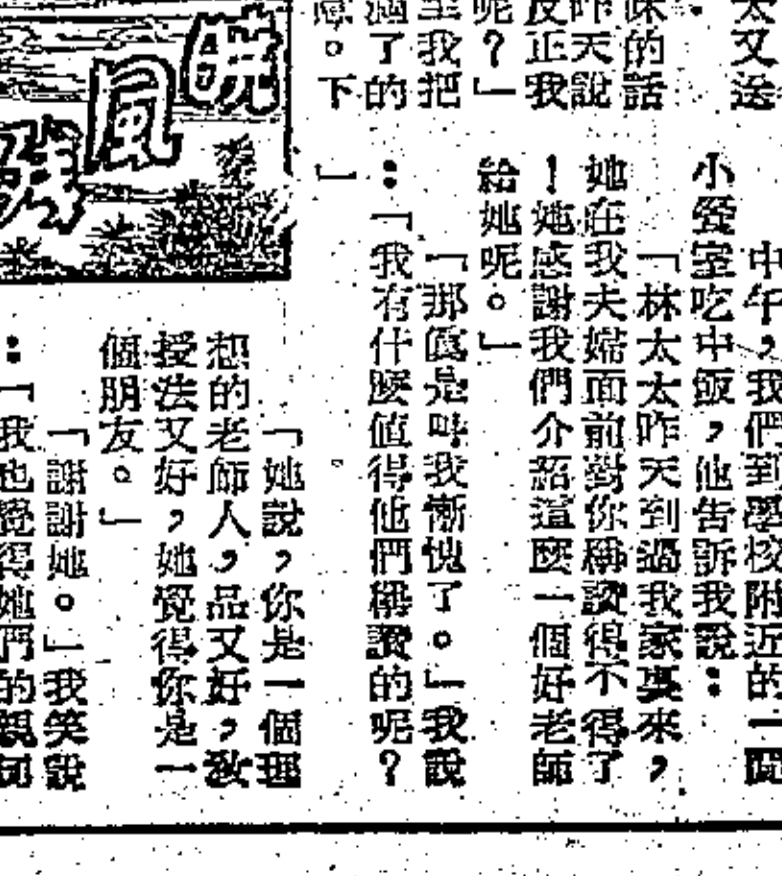 太又送
：
味的話
昨天說
反正我
呢？」
至我把
過了的
。下
曉風殘
中午，我們到學校附近的一間
小餐室吃中飯，他告訴我說：
「林太太昨天到過我家裏來，
她在我夫婦面前對你稱讚得不得了
！她感謝我們介紹這麼一個好老師
給她呢。」
「那眞是叫我慚愧了。」我說
：「我有什麼值得他們稱讚的呢？
」
「她說，你是一個理
想的老師人，品又好，敎
授法又好，她覺得你是一
個朋友。」
「謝謝她。」我笑說
：「我也覺得她們的親切